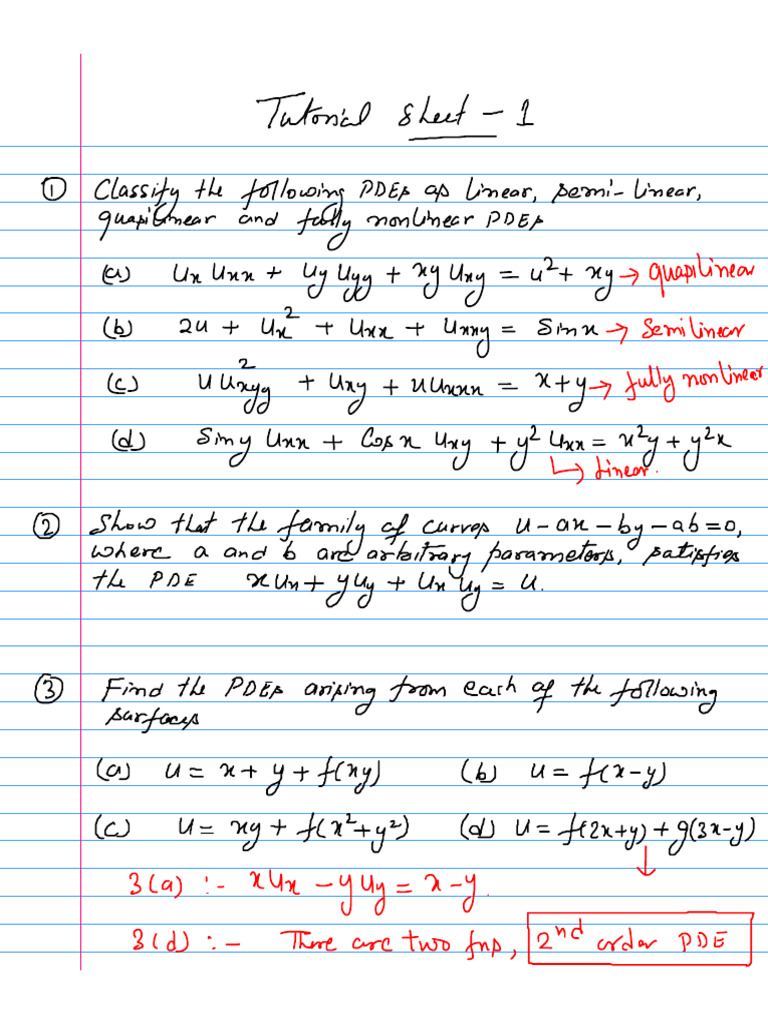 Tutorial Sheet - 1
① Classify the following PDEs as linear, semi-linear,
quasilinear and fully nonlinear PDEs
(a) u_x u_xx + u_y u_yy + xy u_xy = u² + xy → quasilinear
(b) 2u + u_x² + u_xx + u_xxy = Sin x → Semilinear
(c) u u_xyy² + u_xy + u u_xxx = x+y → fully nonlinear
(d) Sin y u_xx + Cos x u_xy + y² u_xx = x²y + y²x
↳ linear.
② Show that the family of curves u-ax-by-ab=0,
where a and b are arbitrary parameters, satisfies
the PDE x u_x + y u_y + u_x u_y = u.
③ Find the PDEs arising from each of the following
surfaces
(a) u = x + y + f(xy) (b) u = f(x-y)
(c) u = xy + f(x²+y²) (d) u = f(2x+y) + g(3x-y)
3(a) :- x u_x - y u_y = x-y.
3(d) :- There are two fns, 2nd order PDE